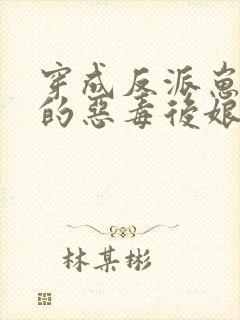 穿成反派崽
的惡毒後娘
林某彬